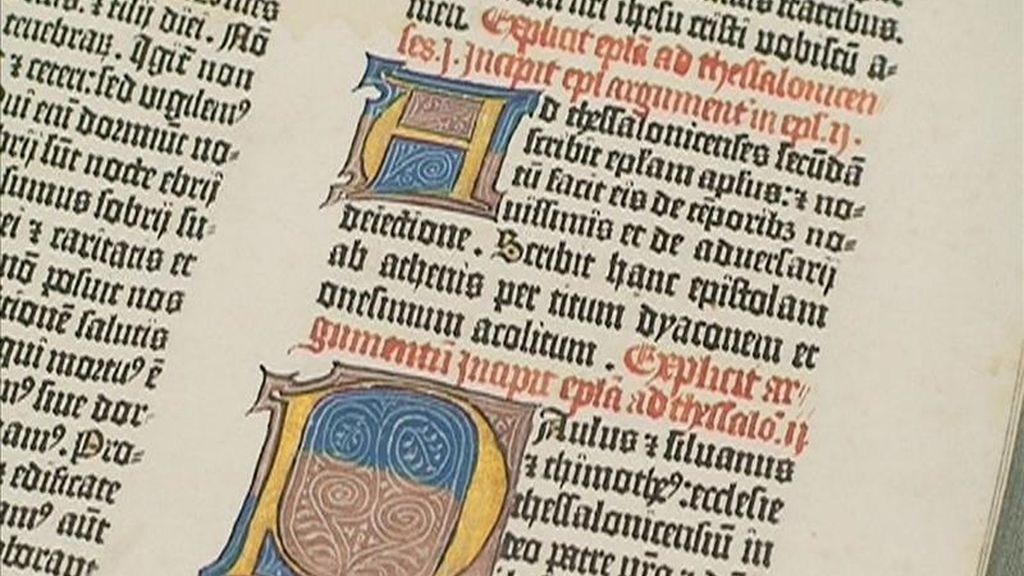 filij diei . Nō
tenebraꝝ. Igit̄ non
⁊ ceteri: sed vigilem⁹
qui em̄ dormiūt no-
brij sūt nocte ebrij
sumus sobrij su-
ei ⁊ caritatis et
nō posuit nos
cionē salutis
qui mortu⁹ ē
siue dor-
am⁹. Pro-
⁊ edificate
am⁹ aūt
laborant
men. Explicit eplā ad thessalonicen
ses .j. Incipit epl argument in epl .ij.
AD thessalonicenses secūdā
scribit eplam aplus: ⁊ no-
tū facit eis de tꝑoribꝫ no-
uissimis et de aduersarij
deiectione . Scribit hanc epistolam
ab athenis per titum dyaconem et
onesimum acolitum . Explicit ar-
gumentū Incipit eplā ad thessalō. ij
PAulus ⁊ siluanus
⁊ thimothe⁹: ecclesie
thessalonicensiū in
deo patre nr̄o ⁊